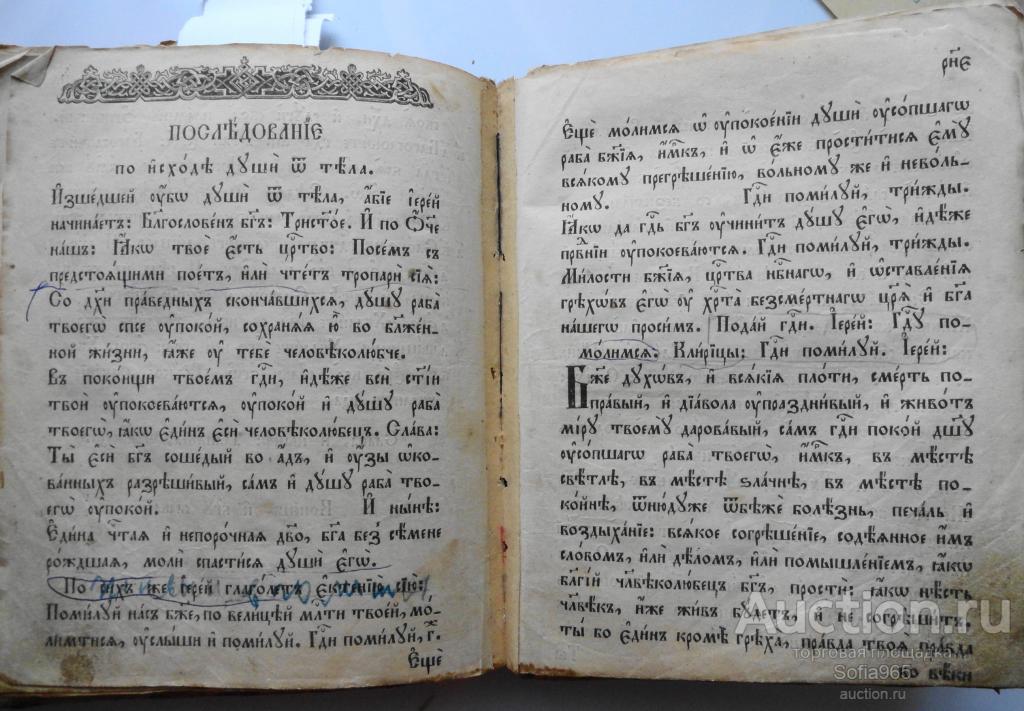 ПОСЛѢ́ДОВАНЇЕ
ПО И҆СХО́ДѢ ДꙊШЍ Ѿ ТѢ́ЛА.
И҆зше́дшей ᲂу҆́бѡ дꙋшѝ ѿ тѣ́ла, а҆́бїе і҆ере́й
начина́етъ: Бл҃гослове́нъ бг҃ъ: Трист҃о́е. И҆ по Ѻ҆́ч҃е
на́шъ: Ꙗ҆́кѡ твоѐ є҆́сть црⷭ҇тво: Посе́мъ съ
предстоѧ́щими пое́тъ, и҆лѝ чте́тъ тропарѝ сїѧ̑:
Со дꙋ́хи пра́ведныхъ сконча́вшихсѧ, дꙋ́шꙋ раба̀
твоегѡ̀ сп҃се ᲂу҆поко́й, сохранѧ́ѧ ю҆̀ во бл҃же́н-
ной жи́зни, ꙗ҆́же ᲂу҆ тебє̀ человѣколю́бче.
Въ поко́ищи твое́мъ гдⷭ҇и, и҆дѣ́же всѝ ст҃і́и
твоѝ ᲂу҆поково́ютсѧ, ᲂу҆поко́й и҆ дꙋ́шꙋ раба̀
твоегѡ̀, ꙗ҆́кѡ є҆ди́нъ є҆сѝ человѣколю́бецъ. Сла́ва:
Ты̀ є҆сѝ бг҃ъ соше́дый во а҆́дъ, и҆ ᲂу҆́зы ѡ҆ко-
ва́нныхъ разрѣши́вый, са́мъ и҆ дꙋ́шꙋ раба̀ тво-
егѡ̀ ᲂу҆поко́й. И҆ ны́нѣ:
Є҆ди́на чⷭ҇таѧ и҆ непоро́чнаѧ дв҃о, бг҃а без̾ сѣ́мене
ро́ждшаѧ, молѝ спасти́сѧ дꙋшѝ є҆гѡ̀.
По си́хъ же і҆ере́й глаго́летъ є҆ктенїю̀ сїю̀:
Поми́лꙋй на́съ бж҃е, по вели́цѣй млⷭ҇ти твое́й, мо́-
лимтисѧ, ᲂу҆слы́ши и҆ поми́лꙋй. Гдⷭ҇и поми́лꙋй, г҃.
Є҆щѐ
рн҃є
Є҆щѐ мо́лимсѧ ѡ҆ ᲂу҆покое́нїи дꙋшѝ ᲂу҆со́пшагѡ
раба̀ бж҃їѧ, и҆́м҃къ, и҆ ѡ҆ є҆́же прости́тисѧ є҆мꙋ̀
всѧ́комꙋ прегрѣше́нїю, во́льномꙋ же и҆ нево́ль-
номꙋ. Гдⷭ҇и поми́лꙋй, три́жды.
Ꙗ҆́кѡ да гдⷭ҇ь бг҃ъ ᲂу҆чини́тъ дꙋ́шꙋ є҆гѡ̀, и҆дѣ́же
првⷣнїи ᲂу҆покоева́ютсѧ. Гдⷭ҇и поми́лꙋй, три́жды.
Ми́лости бж҃їѧ, црⷭ҇тва нбⷭ҇нагѡ, и҆ ѡ҆ставле́нїѧ
грѣхѡ́въ є҆гѡ̀ ᲂу҆ хрⷭ҇та̀ безсме́ртнагѡ цр҃ѧ̀ и҆ бг҃а
на́шегѡ про́симъ. Пода́й гдⷭ҇и. І҆ере́й: Гдⷭ҇ꙋ по-
мо́лимсѧ. Кли́рицы: Гдⷭ҇и поми́лꙋй. І҆ере́й:
Бж҃е дꙋхѡ́въ, и҆ всѧ́кїѧ пло́ти, сме́рть по-
пра́вый, и҆ дїа́вола ᲂу҆праздни́вый, и҆ живо́тъ
мі́рꙋ твоемꙋ̀ дарова́вый, са́мъ гдⷭ҇и поко́й дш҃ꙋ
ᲂу҆со́пшагѡ раба̀ твоегѡ̀, и҆́м҃къ, въ мѣ́стѣ
свѣ́тлѣ, въ мѣ́стѣ ѕла́чнѣ, въ мѣ́стѣ по-
ко́йнѣ, ѿню́дꙋже ѿбѣжѐ болѣ́знь, печа́ль и҆
воздыха́нїе: всѧ́кое согрѣше́нїе, содѣ́ѧнное и҆́мъ
сло́вомъ, и҆лѝ дѣ́ломъ, и҆лѝ помышле́нїемъ, ꙗ҆́кѡ
бл҃гі́й чл҃вѣколю́бецъ бг҃ъ, простѝ: ꙗ҆́кѡ нѣ́сть
чл҃вѣ́къ, и҆́же жи́въ бꙋ́детъ, и҆ не согрѣши́тъ.
ты́ бо є҆ди́нъ кромѣ̀ грѣха̀, пра́вда твоѧ̀ пра́вда
во вѣ́ки
Auction.ru
торговая площадка
Sofia965
auction.ru